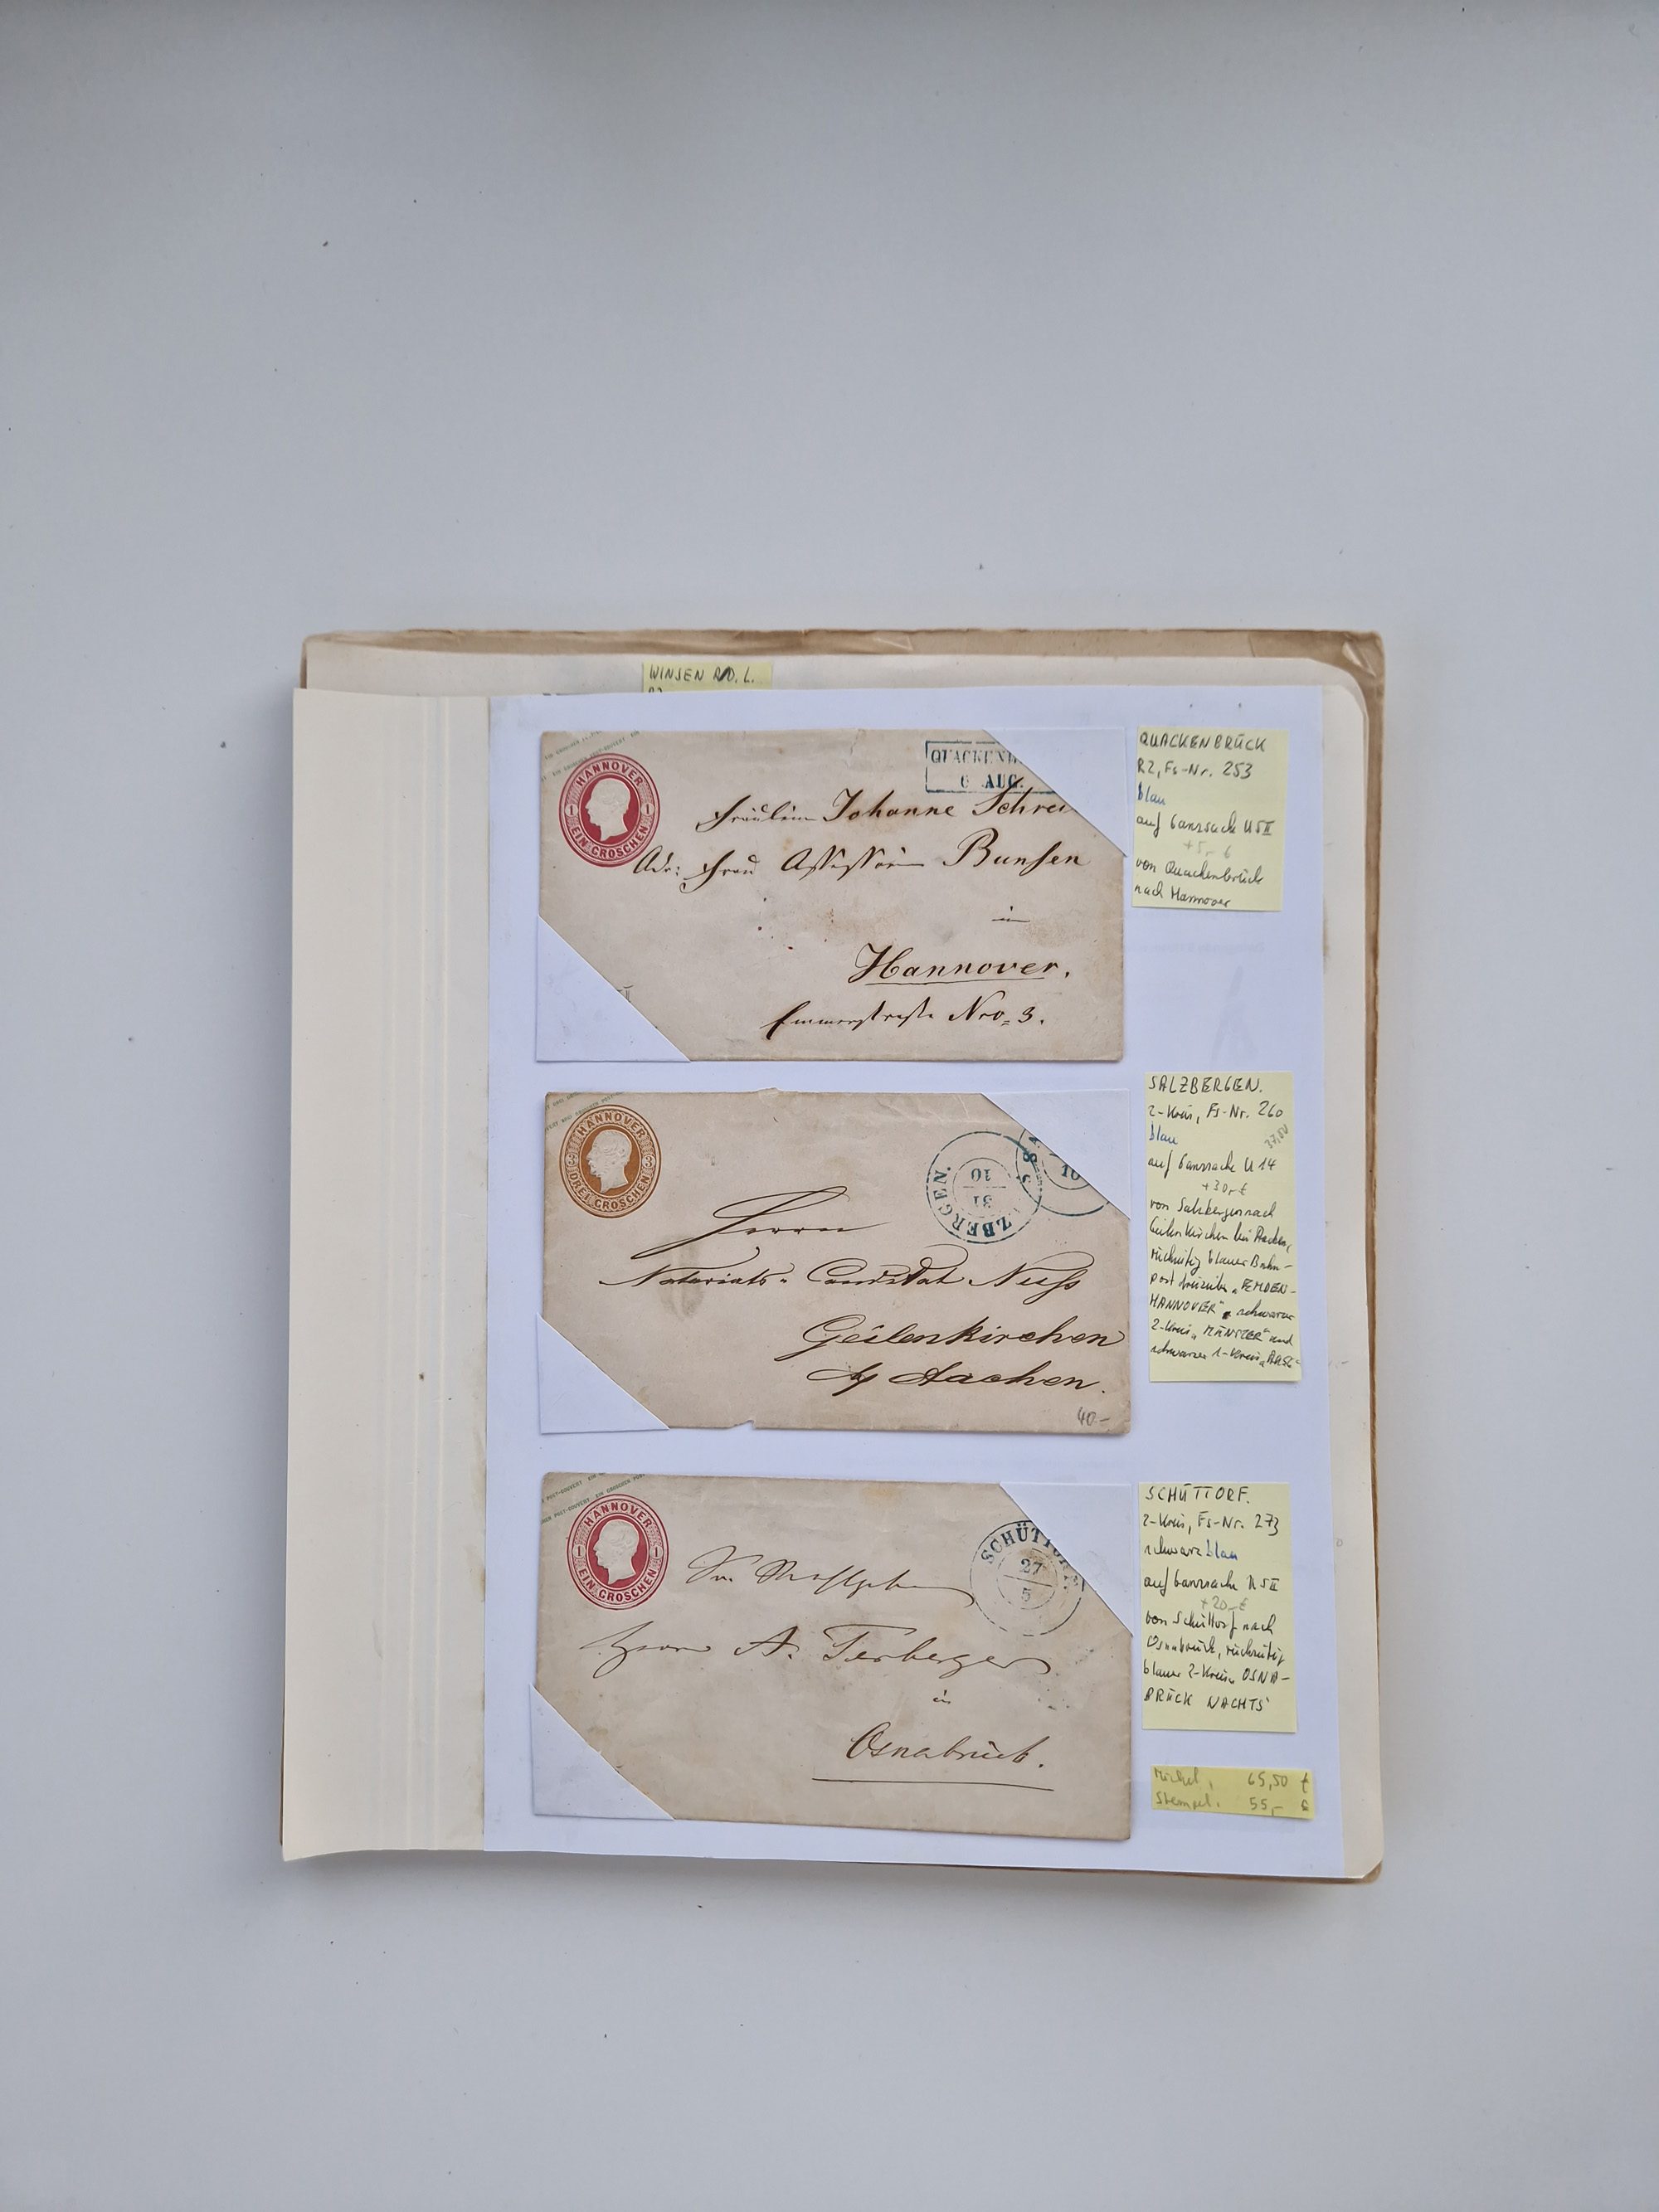 WINSEN A/D. L.
HANNOVER
1 1
EIN GROSCHEN
QUACKENB
6 AUG.
Fräulein Johanne Schre
Adr: Frau Assessorin Bunsen
in
Hannover.
Nro. 3.
QUACKENBRÜCK
R2, Fs-Nr. 253
blau
auf Ganzsache U5II
+5,- €
von Quackenbrück
nach Hannover
HANNOVER
3 3
DREI GROSCHEN
ZBERGEN.
31
10
S
10
Herrn
Notariats-Candidat Nuss
Geilenkirchen
by Aachen.
40.-
SALZBERGEN.
2-Kreis, Fs-Nr. 260
blau
37,50
auf Ganzsache U 14
+30,- €
von Salzbergen nach
Geilenkirchen bei Aachen,
rückseitig blauer Bahn-
post dreizeiler "EMDEN-
HANNOVER", schwarzer
2-Kreis "MÜNSTER" und
schwarzer 1-Kreis
POST-COUVERT EIN GROSCHEN
HANNOVER
1 1
EIN GROSCHEN
SCHÜTTORF.
27
5
Herrn A. Terberger
in
Osnabrück.
SCHÜTTORF.
2-Kreis, Fs-Nr. 273
schwarzblau
auf Ganzsache U5II
+20,- €
von Schüttorf nach
Osnabrück, rückseitig
blauer 2-Kreis "OSNA-
BRÜCK NACHTS"
Michel: 65,50 €
Stempel: 55,- €